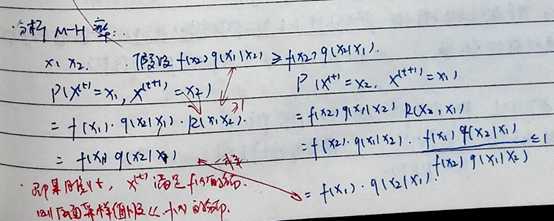 分析 M-H 算法:
x₁ x₂. 假设 f(x₂) q(x₁|x₂) ≥ f(x₁) q(x₂|x₁).
P(X⁽ᵗ⁾=x₁, X⁽ᵗ⁺¹⁾=x₂)
= f(x₁)·q(x₂|x₁)·R(x₁,x₂). 1
= f(x₁) q(x₂|x₁) 一样
P(X⁽ᵗ⁾=x₂, X⁽ᵗ⁺¹⁾=x₁)
= f(x₂) q(x₁|x₂) R(x₂,x₁)
= f(x₂)·q(x₁|x₂)· f(x₁) q(x₂|x₁) / f(x₂) q(x₁|x₂) ≤1
= f(x₁)·q(x₂|x₁)
·如果 t, X⁽ᵗ⁾ 满足 f(x) 的分布.
则后面采样值 f(x) 的分布.